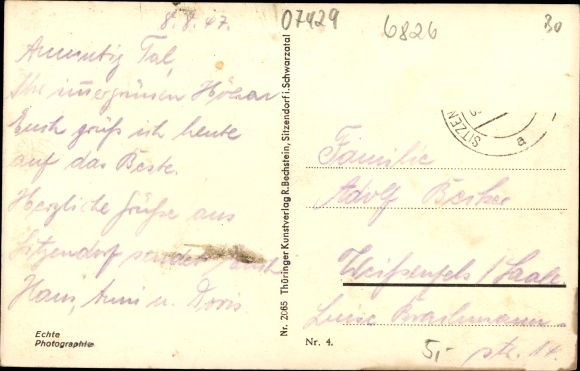 8.8.47.
07429
6826
30
Anmutig Tal,
Ihr immergrünen Höhen
Euch grüß ich heute
auf das Beste.
Herzliche Grüße aus
Sitzendorf sendet Euch
Hans, Anni u. Doris.
Echte
Photographie
Nr. 2085 Thüringer Kunstverlag R. Bechstein, Sitzendorf i. Schwarzatal
SITZEN
a
Familie
Adolf Becker
Weißenfels / Saale.
Luise Brachmann-
str. 14.
Nr. 4.
5,-